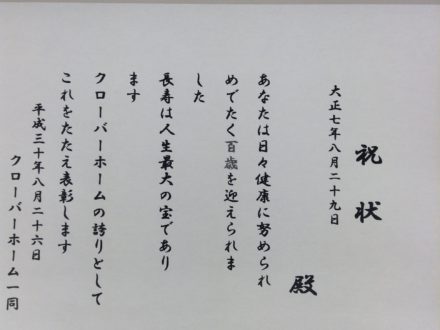 祝状
大正七年八月二十九日
殿
あなたは日々健康に努められ
めでたく百歳を迎えられま
した
長寿は人生最大の宝であり
ます
クローバーホームの誇りとして
これをたたえ表彰します
平成三十年八月二十六日
クローバーホーム一同